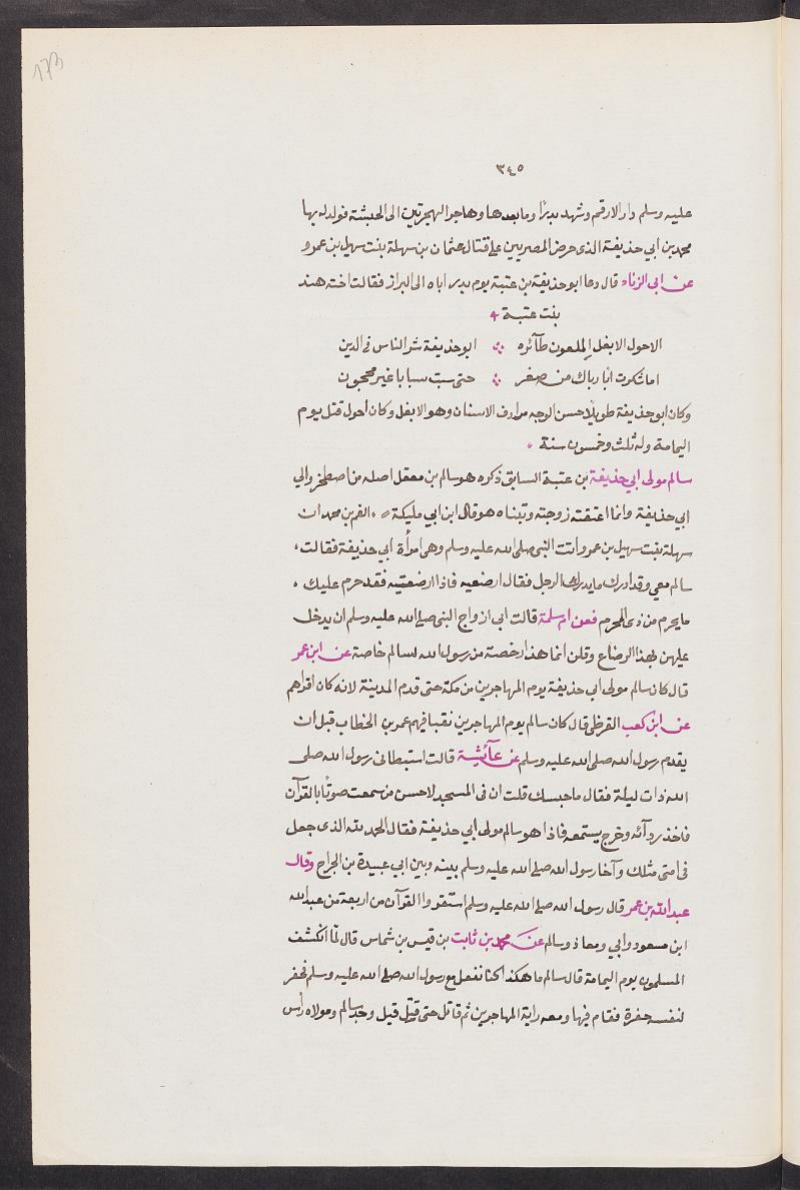 173
٣٤٥
عليه وسلم دار الارقم وشهد بدرًا وما بعدها وهاجر الهجرتين الى الحبشة فولد له بها
محمد بن ابي حذيفة الذى حرض المصريين على قتال عثمان بن سهلة بنت سهيل بن عمرو
عن ابى الزناد قال دعا ابو حذيفة بن عتبة يوم بدر اباه الى البراز فقالت اخته هند
بنت عتبة
الاحول الابغل الملعون طآئره ابو حذيفة شر الناس فى الدين
اما شكرت ابا رباك من صغر حتى سبت سبابا غير محجون
وكان ابو حذيفة طويلًا حسن الوجه مرادف الاسنان وهو الابغل وكان احول قتل يوم
اليمامة وله ثلث وخمسون سنة
سالم مولى ابي حذيفة بن عتبة السابق ذكره هو سالم بن معقل اصله من اصطخر والي
ابي حذيفة وانما اعتقته زوجته وتبناه هو قال ابن ابي مليكة القم بن محمد ان
سهلة بنت سهيل بن عمرو اتت النبى صلى الله عليه وسلم وهى امرأة ابي حذيفة فقالت
سالم معي وقد ادرك ما يدرك الرجل فقال ارضعيه فاذا ارضعتيه فقد حرم عليك
ما يحرم من ذى المحرم فعن ام سلمة قالت ابى ازواج النبى صلى الله عليه وسلم ان يدخل
عليهن بهذا الرضاع وقلن انما هذا رخصة من رسول الله لسالم خاصة عن ابن عمر
قال كان سالم مولى ابي حذيفة يوم المهاجرين من مكة حتى قدم المدينة لانه كان اقراهم
عن ابن كعب القرظى قال كان سالم يوم المهاجرين نقبا فيهم عمر بن الخطاب قبل ان
يقدم رسول الله صلى الله عليه وسلم عن عآئشة قالت استبطانى رسول الله صلى
الله ذات ليلة فقال ما حبسك قلت ان فى المسجد لاحسن من سمعت صوتًا بالقرآن
فاخذ ردآئه وخرج يستمعه فاذا هو سالم مولى ابي حذيفة فقال الحمد لله الذى جعل
فى امتى مثلك وآخا رسول الله صلى الله عليه وسلم بينه وبين ابي عبيدة بن الجراح وقال
عبد الله بن عمر قال رسول الله صلى الله عليه وسلم استقروا القرآن من اربعة من عبد الله
ابن مسعود وأبي ومعاذ وسالم عن محمد بن ثابت بن قيس بن شماس قال لمّا انكشف
المسلمون يوم اليمامة قال سالم ما هكذا كنا نفعل مع رسول الله صلى الله عليه وسلم فحفر
لنفسه حفرة فقام فيها ومعه راية المهاجرين ثم قاتل حتى قتل قيل وجد سالم ومولاه رأس